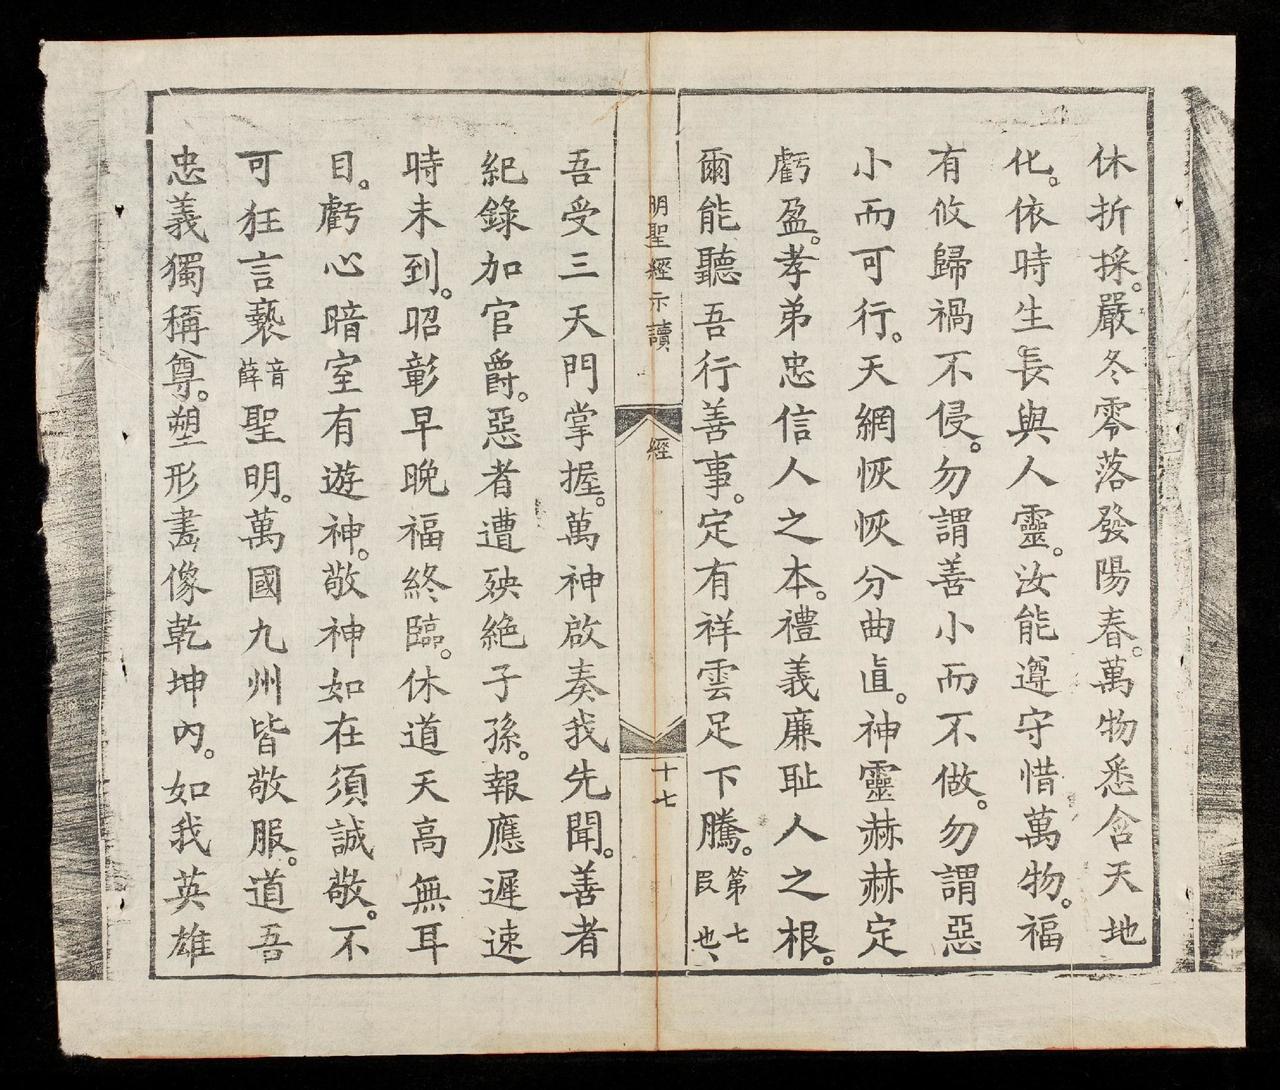 休折採。嚴冬零落發陽春。萬物悉含天地
化。依時生長與人靈。汝能遵守惜萬物。福
有攸歸禍不侵。勿謂善小而不做。勿謂惡
小而可行。天網恢恢分曲直。神靈赫赫定
虧盈。孝弟忠信人之本。禮義廉耻人之根。
爾能聽吾行善事。定有祥雲足下騰。第七叚也、
明聖經示讀 經 十七
吾受三天門掌握。萬神啟奏我先聞。善者
紀錄加官爵。惡者遭殃絕子孫。報應遲速
時未到。昭彰早晚福終臨。休道天高無耳
目。虧心暗室有遊神。敬神如在須誠敬。不
可狂言褻音薛聖明。萬國九州皆敬服。道吾
忠義獨稱尊。塑形畫像乾坤內。如我英雄